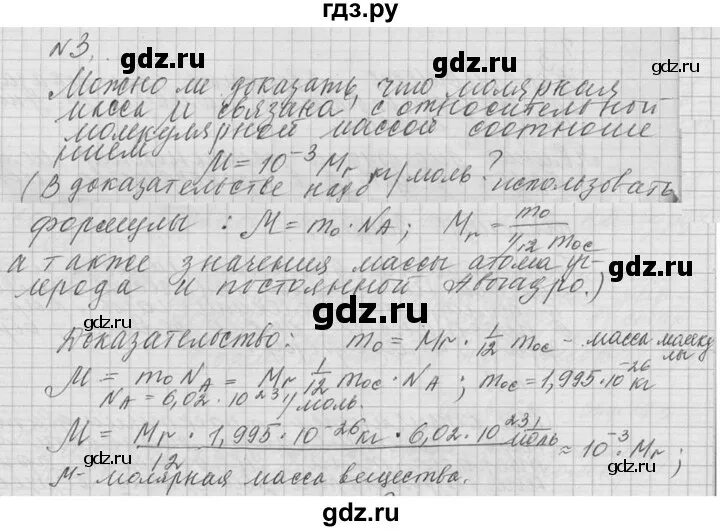 гдз.ру
№3.
gdz.ru gdz.ru
Можно ли доказать, что молярная
масса М связана с относительной
молекулярной массой соотноше
нием M = 10⁻³ Mr кг/моль?
gdz.ru
(В доказательстве надо использовать
формулы: M = m₀ · NA; Mr = m₀ / 1/12 m₀c
а также значения массы атома уг-
gdz.ru
лерода и постоянной Авогадро.)
gdz.ru
Доказательство: m₀ = Mr · 1/12 m₀c - масса молеку
лы
M = m₀ NA = Mr 1/12 m₀c · NA; m₀c = 1,995·10⁻²⁶ кг
NA = 6,02 · 10²³ 1/моль.
gdz.ru gdz.ru
M = Mr · 1,995·10⁻²⁶ кг · 6,02·10²³ 1/моль / 12 ≈ 10⁻³ · Mr;
M - молярная масса вещества.
gdz.ru